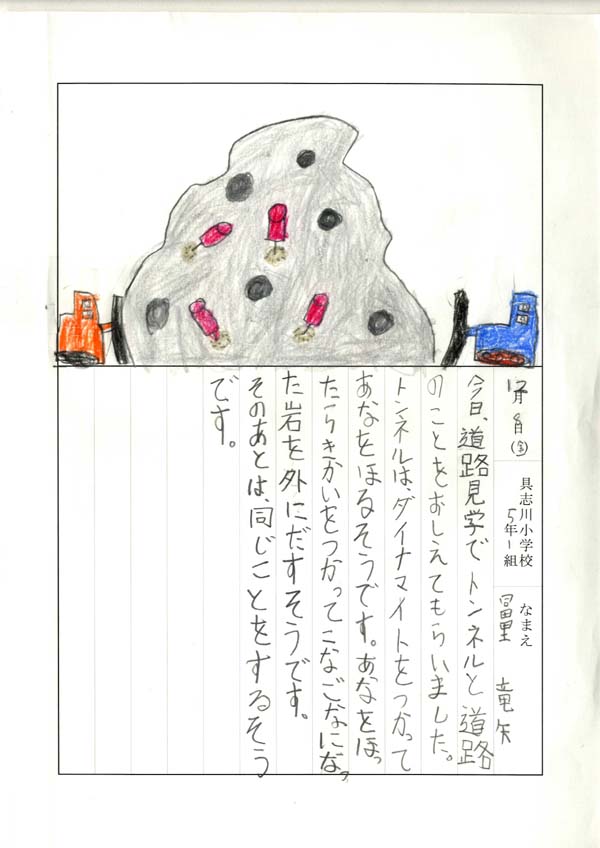 12月8日(金)
具志川小学校
5年1組
なまえ
冨里 竜矢
今日、道路見学でトンネルと道路
のことをおしえてもらいました。
トンネルは、ダイナマイトをつかって
あなをほるそうです。あなをほっ
たらきかいをつかってこなごなになっ
た岩を外にだすそうです。
そのあとは、同じことをするそう
です。